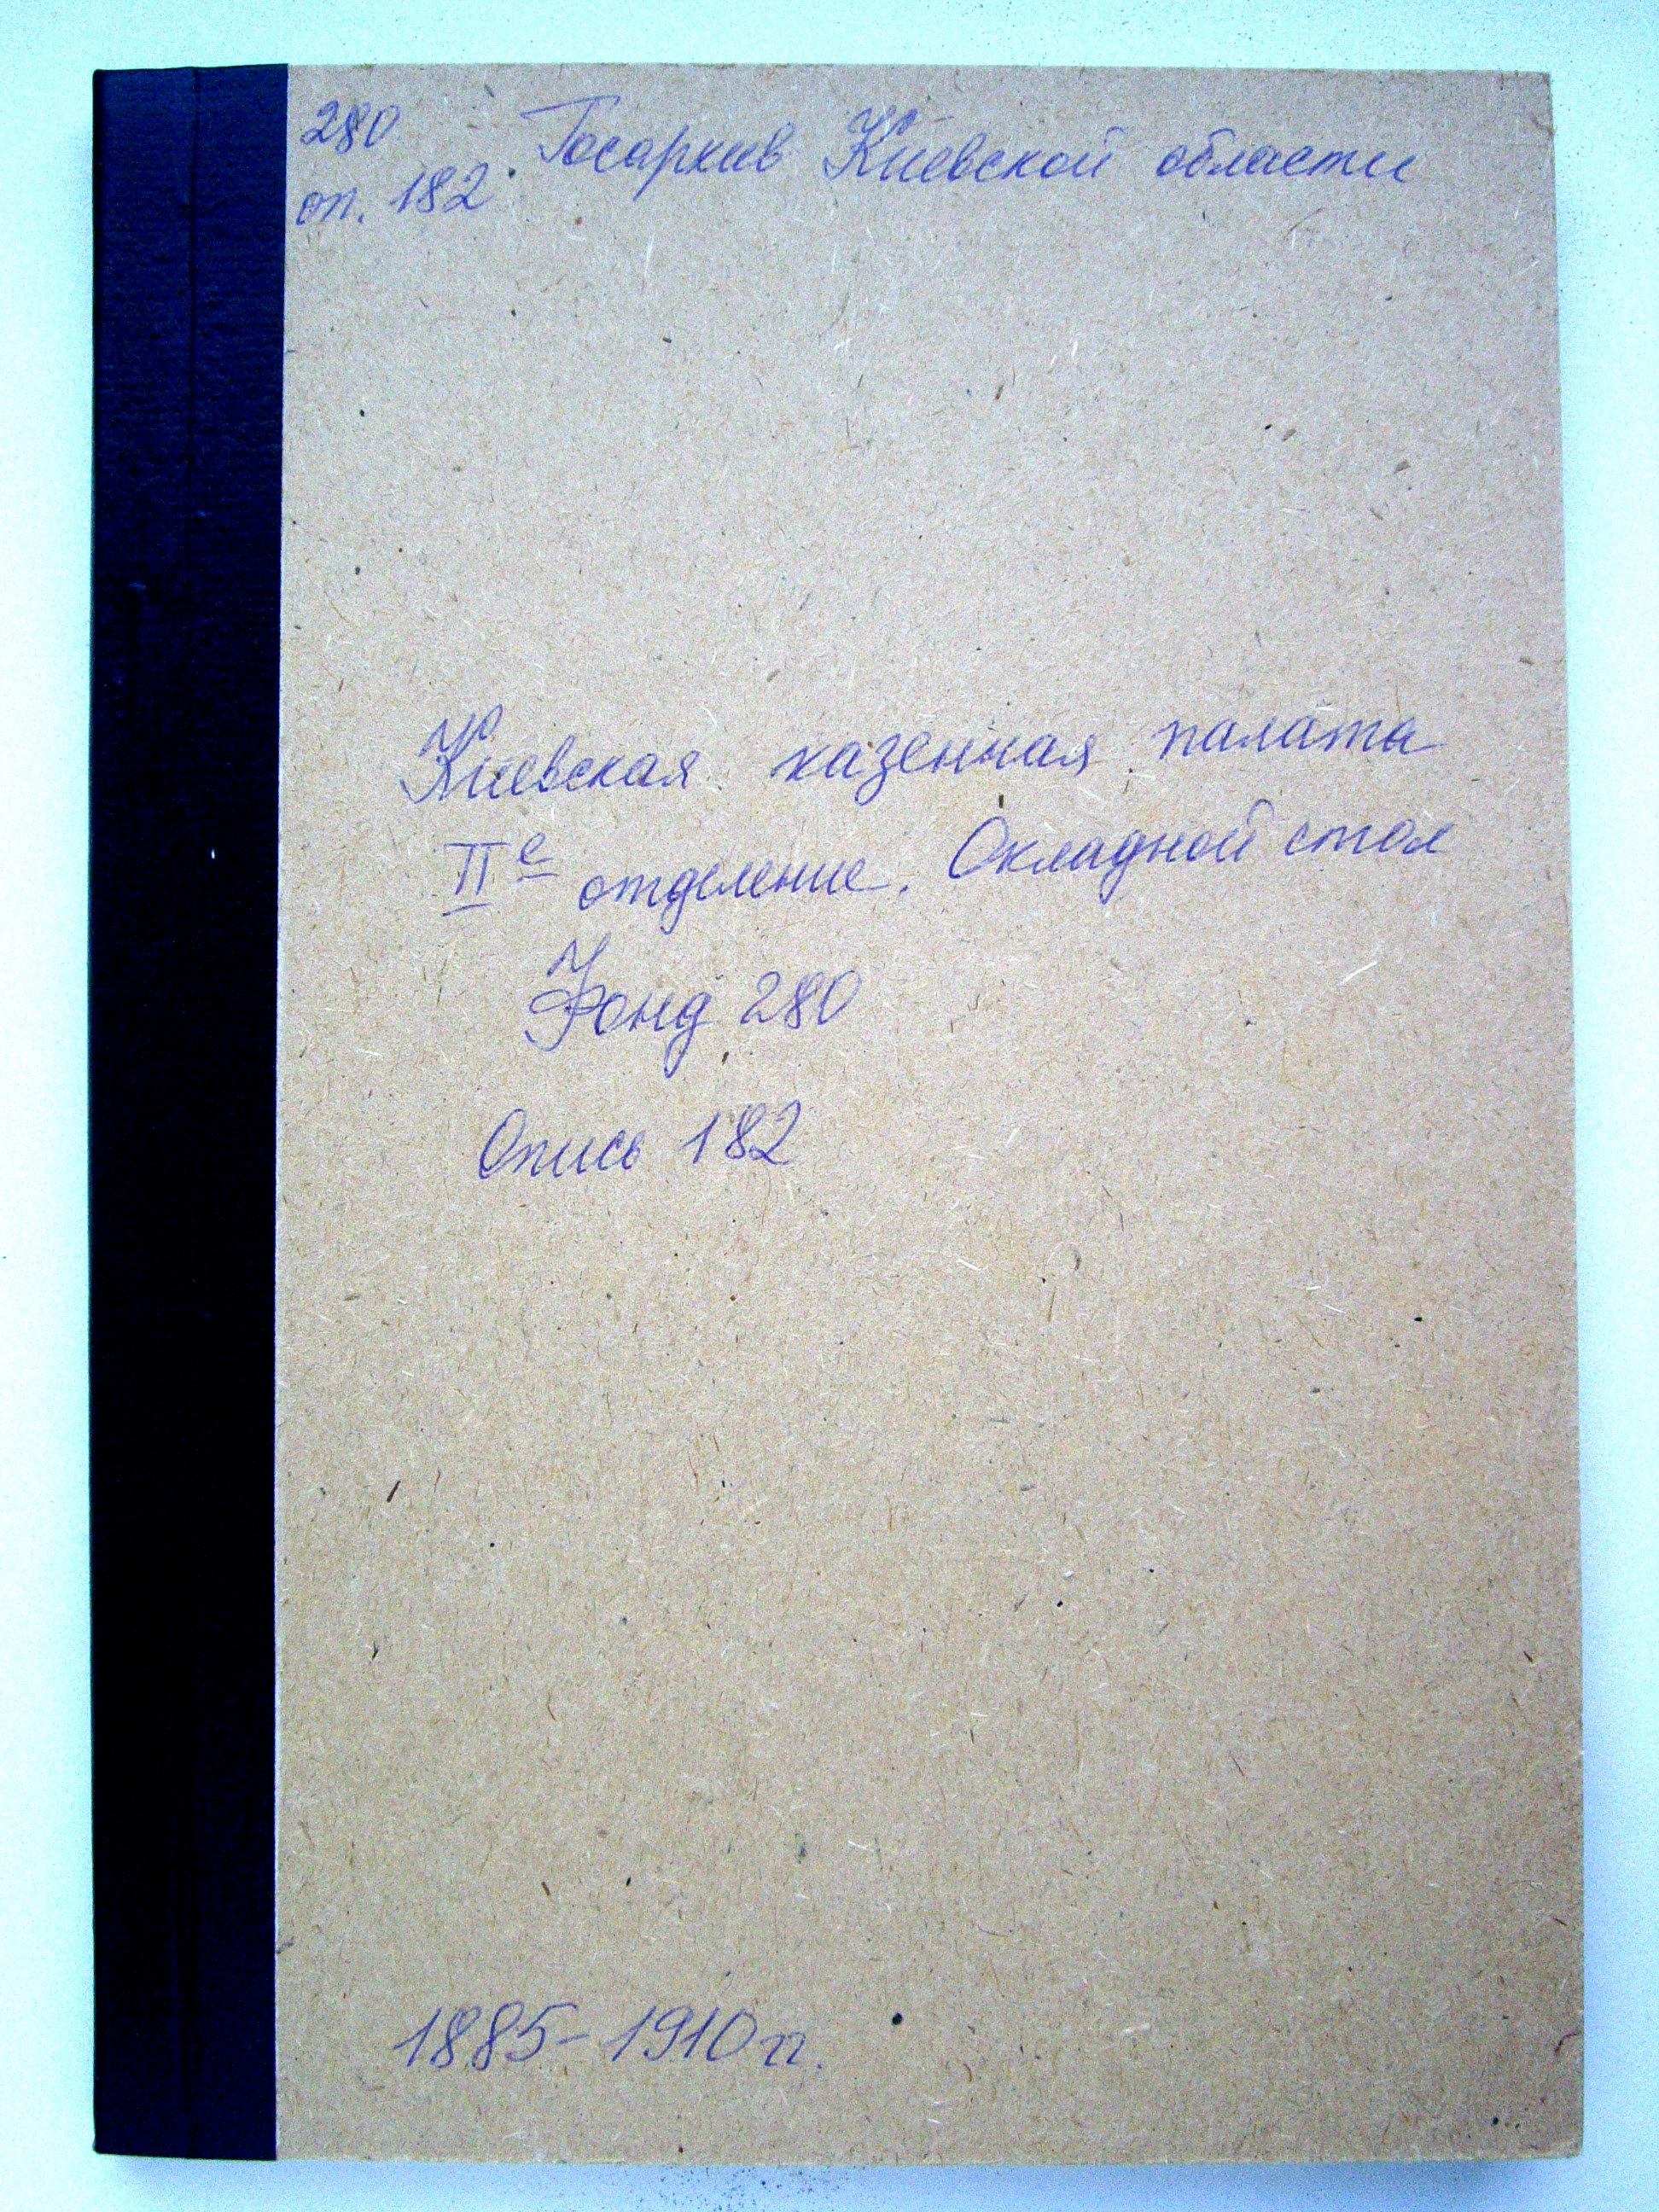 280
оп. 182
Госархив Киевской области
Киевская казенная палата
IIе отделение. Окладной стол
Фонд 280
Опись 182
1885-1910 гг.